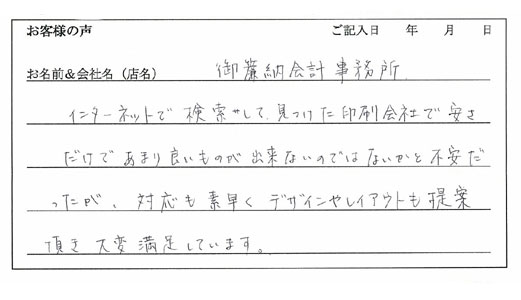 お客様の声 ご記入日 年 月 日
お名前&会社名（店名） 御簾納会計事務所
インターネットで検索して、見つけた印刷会社で安さ
だけであまり良いものが出来ないのではないかと不安だ
ったが、対応も素早くデザインやレイアウトも提案
頂き大変満足しています。